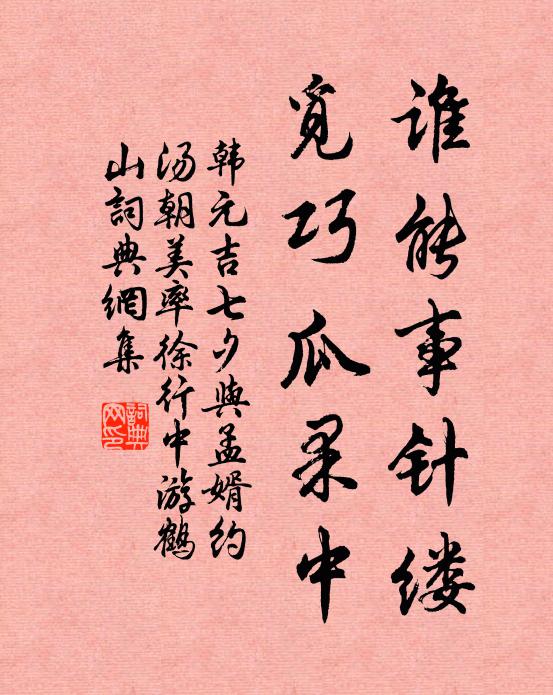 谁能事针缕
觅巧瓜果中
韩元吉七夕與孟婿约
汤朝美率徐行中游鹤
山詞典網集
詞典
网印